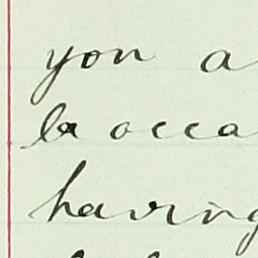 you a
be occa
having